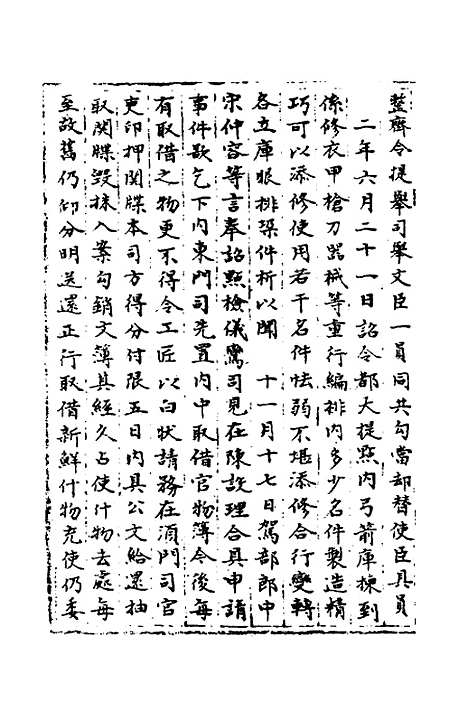 整齊令提舉司舉文臣一員同共勾當却替使臣具員
二年六月二十一日詔令都大提點內弓箭庫揀到
係修衣甲槍刀器械等重行編排內多少名件製造精
巧可以添修使用若干名件怯弱不堪添修合行變轉
各立庫眼排垜件析以聞　十一月十七日駕部郎中
宋仲容等言奉詔點檢儀鸞司見在陳設理合具申請
事件欲乞下內東門司先置內中取借官物簿令後每
有取借之物更不得令工匠以白狀請務在須門司官
吏印押関牒本司方得分付限五日內具公文給還抽
取関牒毀抹入案勾銷文簿其經久占使什物去處每
至故舊仍仰分明送還正行取借新鮮什物充使仍委